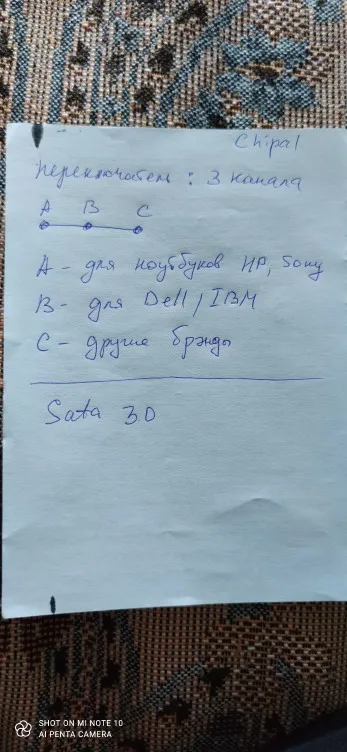 Chipal
переключатель : 3 канала
A B C
A - для ноутбуков HP, Sony
B - для Dell / IBM
C - другие брэнды
Sata 3.0
SHOT ON MI NOTE 10
AI PENTA CAMERA